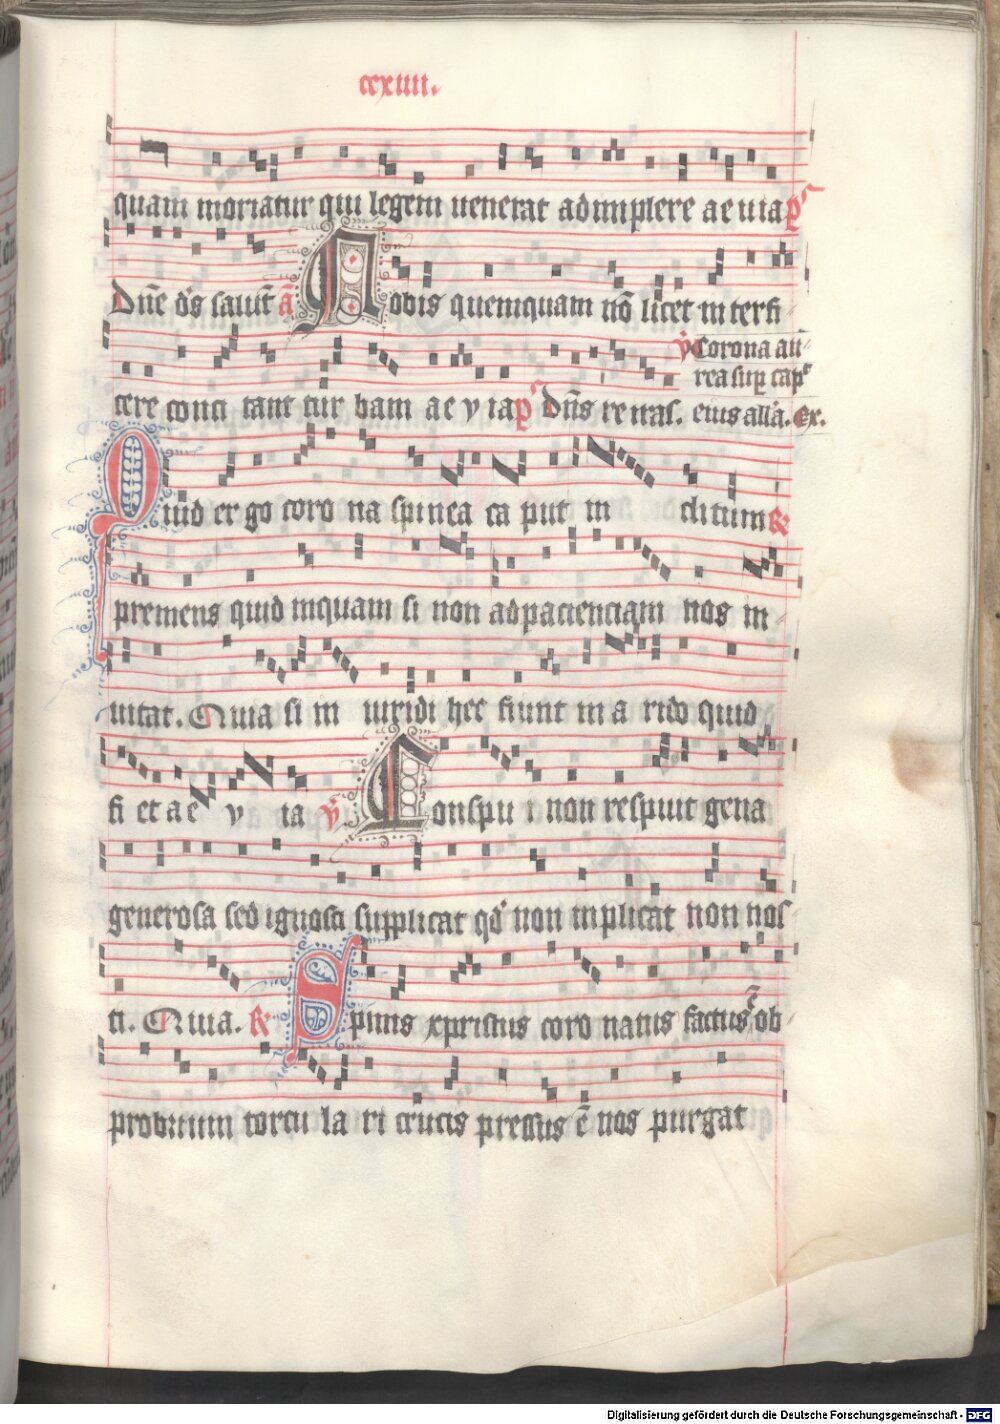 ccxiiii.
quam moriatur qui legem venerat adimplere aevia p̄s
Dn̄e d̄s salut̄ ā Nobis quemquam nō licet interfi
cere conci tant tur bam ae v ia p̄s Dn̄s regnas. v̄ Corona au
rea sup cap
eius all'a. Ex.
Quid ergo corona spinea ca put in clitum R
premens quid inquam si non ad pacienciam nos in
vitat. Quia si in viridi hec fiunt in arido quid
fi et ae v ia v̄ Conspu i non respuit gena
generosa sed ignosci supplicat qd non inplicat non nos
ti. Quia. R Spinis xpristus coro natus factus ē ob
probrium torcu la ri crucis pressus ē nos purgat
Digitalisierung gefördert durch die Deutsche Forschungsgemeinschaft - DFG